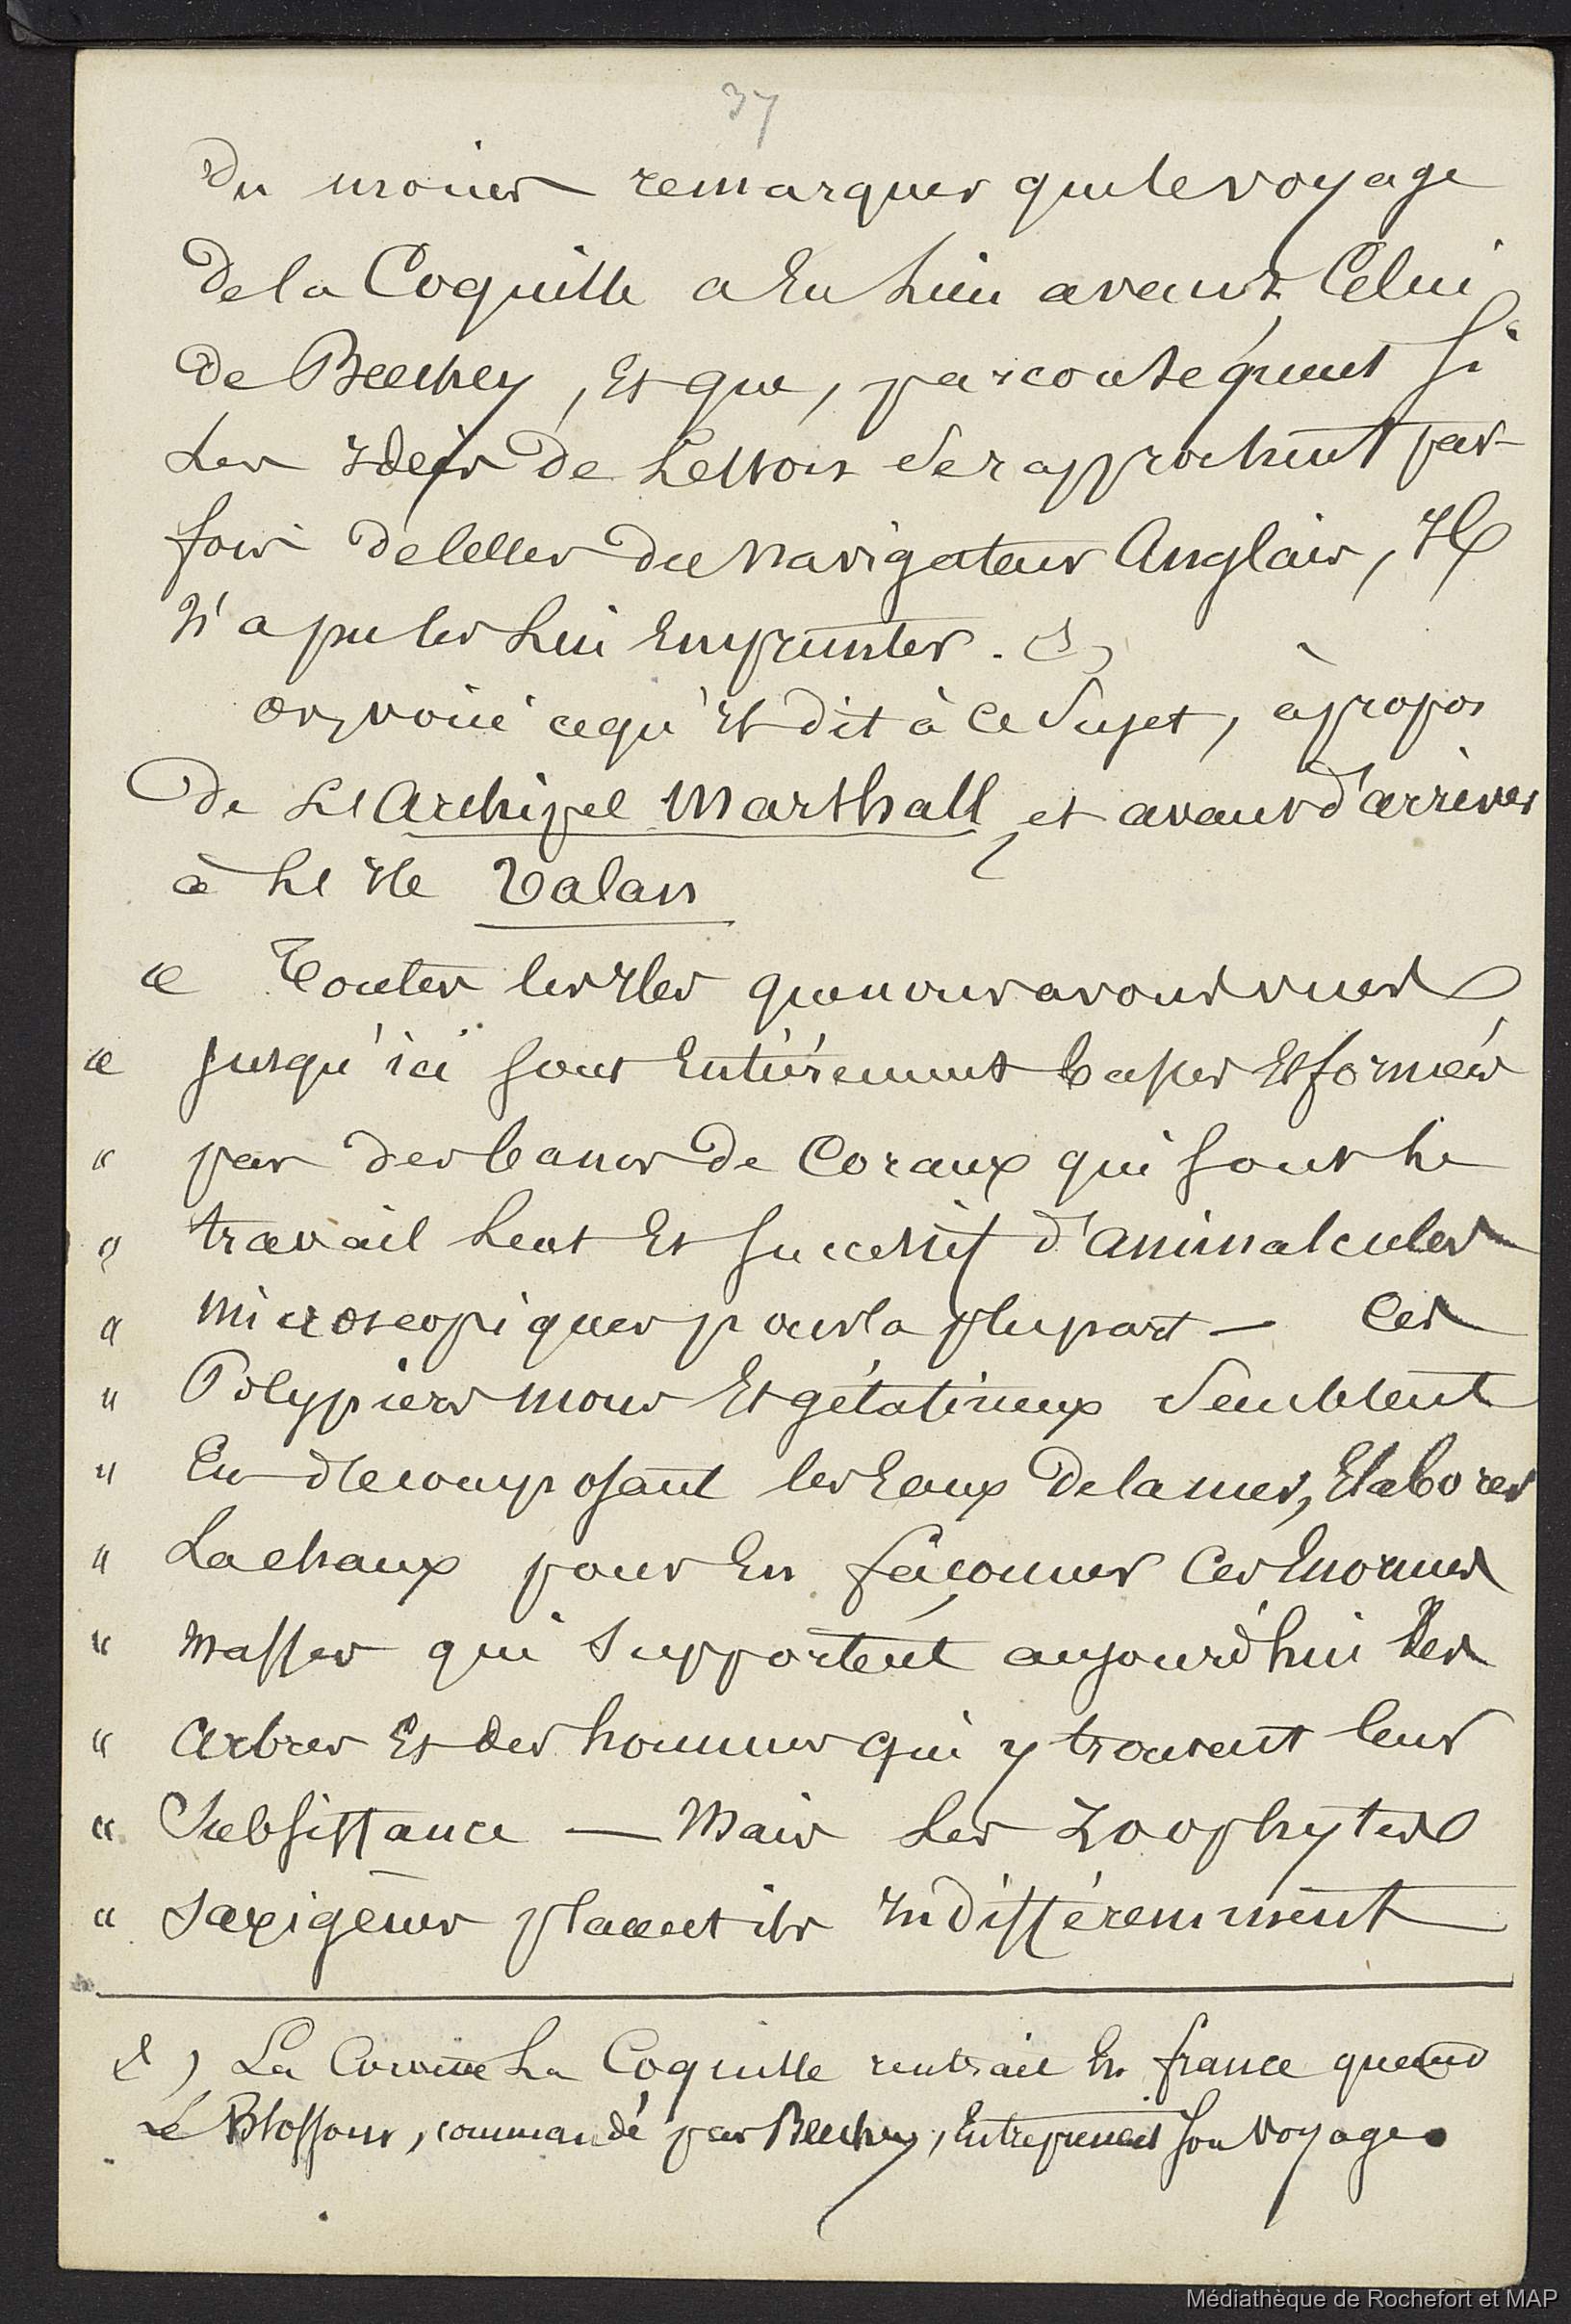 37
Du moins remarquer que le voyage
de la Coquille a Eu Lieu avant Celui
de Beechey, Et que, par conséquent si
Les Idées de Lesson se rapprochent par-
fois de celles du navigateur Anglais, Il
N'a pu les Lui Emprunter.
or, voici ce qu'Est dit à ce sujet, à propos
De L'Archipel Marshall et avant d'arriver
à L'Ile Talan
« Toutes les Iles que nous avons vues
« jusqu'ici sont Entièrement basses Et formées
« par des bancs de Coraux qui sont le
« travail Lent Et successif d'animalcules
« microscopiques pour la plupart — Ces
« Polypiers mous Et gélatineux semblent
« En décomposant les Eaux de la mer, Elaborer
« La chaux pour En façonner ces Enormes
« masses qui supportent aujourd'hui des
« Arbres Et des hommes qui y trouvent leur
« Subsistance — Mais Les Zoophytes
« saxigènes placent ils Indifféremment
) La Corvette La Coquille rentrait En france quand
Le Blossom, commandé par Beechey, Entreprenait son voyage.
Médiathèque de Rochefort et MAP